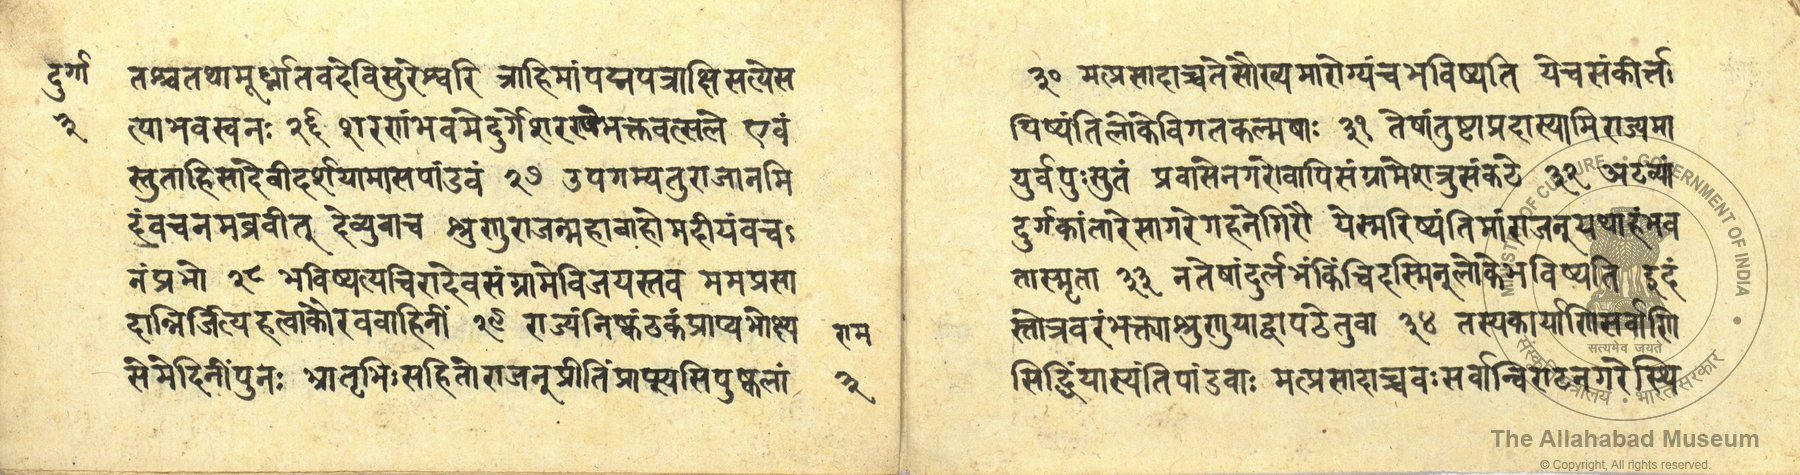 दुर्गा
३
तश्चतथामूर्ध्नातवदेविसुरेश्वरि त्राहिमांपद्मपत्राक्षिसत्येस
त्याभवस्वनः २६ शरणंभवमेदुर्गेशरण्येभक्तवत्सले एवं
स्तुताहिसादेवीदर्शयामासपांडवं २७ उपगम्यतुराजानमि
दंवचनमब्रवीत् देव्युवाच शृणुराजन्महाबाहोमदीयंवच
नंप्रभो २८ भविष्यत्यचिरादेवसंग्रामेविजयस्तव ममप्रसा
दान्निर्जित्यहत्वाकौरववाहिनीं २९ राज्यंनिष्कंठकंप्राप्यभोक्ष्य
सेमेदिनींपुनः भ्रातृभिःसहितोराजन्प्रीतिंप्राप्स्यसिपुष्कलां
राम
३
३० मत्प्रसादाच्चतेसौख्यमारोग्यंचभविष्यति येचसंकीर्त्त
यिष्यंतिलोकेविगतकल्मषाः ३१ तेषांतुष्टाप्रदास्यामिराज्यमा
युर्वपुःसुतं प्रवासेनगरेवापिसंग्रामेशत्रुसंकटे ३२ अटव्यां
दुर्गकांतारेसागरेगहनेगिरौ येस्मरिष्यंतिमांराजन्यथाहंभव
तास्मृता ३३ नतेषांदुर्लभंकिंचिदस्मिन्लोकेभविष्यति इदं
स्तोत्रवरंभक्त्याशृणुयाद्वापठेतुवा ३४ तस्यकार्याणिसर्वाणि
सिद्धिंयास्यंतिपांडवाः मत्प्रसादाच्चवःसर्वान्विराटनगरेस्थि
MINISTRY OF CULTURE GOVERNMENT OF INDIA
सत्यमेव जयते
संस्कृति मंत्रालय भारत सरकार
The Allahabad Museum
© Copyright, All rights reserved.